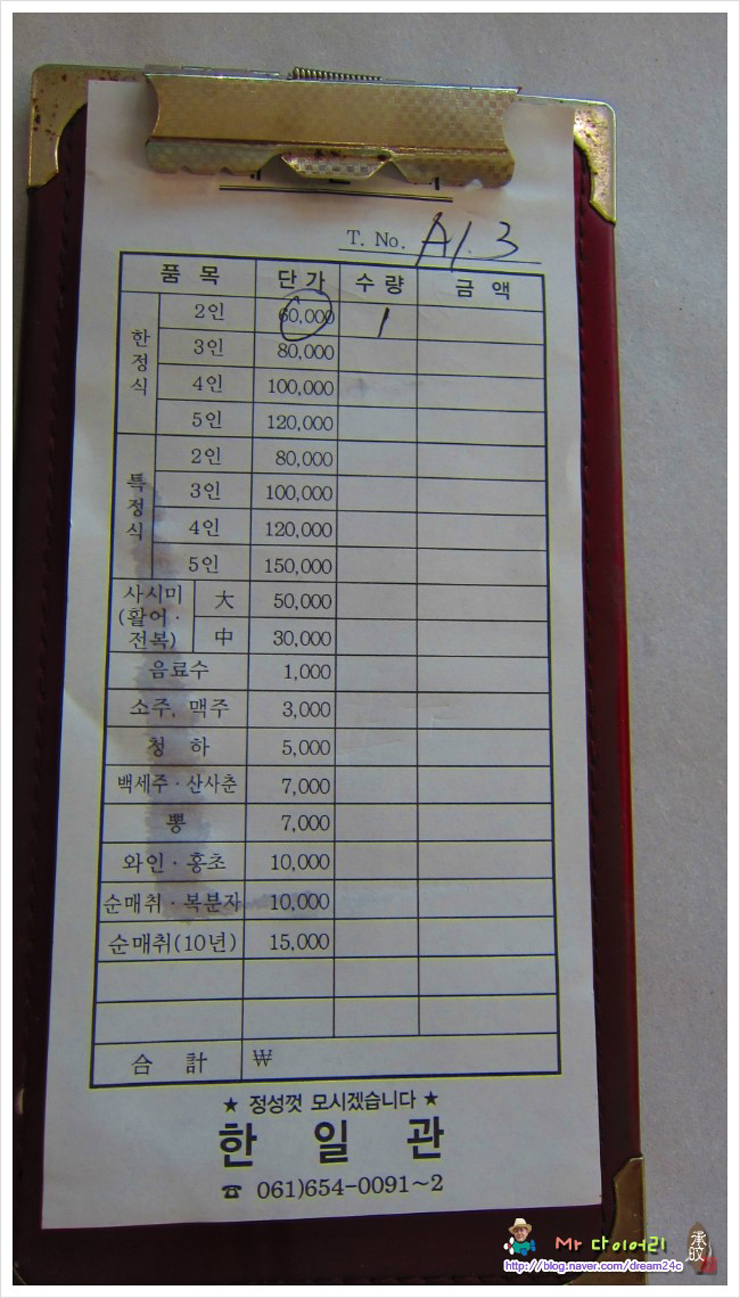 T. No. A1.3
품 목 단 가 수 량 금 액
한정식
2인 60,000 1
3인 80,000
4인 100,000
5인 120,000
특정식
2인 80,000
3인 100,000
4인 120,000
5인 150,000
사시미
(활어·
전복)
大 50,000
中 30,000
음료수 1,000
소주, 맥주 3,000
청 하 5,000
백세주·산사춘 7,000
뽕 7,000
와인·홍초 10,000
순매취·복분자 10,000
순매취(10년) 15,000
合 計 ₩
★ 정성껏 모시겠습니다 ★
한 일 관
☎ 061)654-0091~2
Mr 다이어리
http://blog.naver.com/dream24c